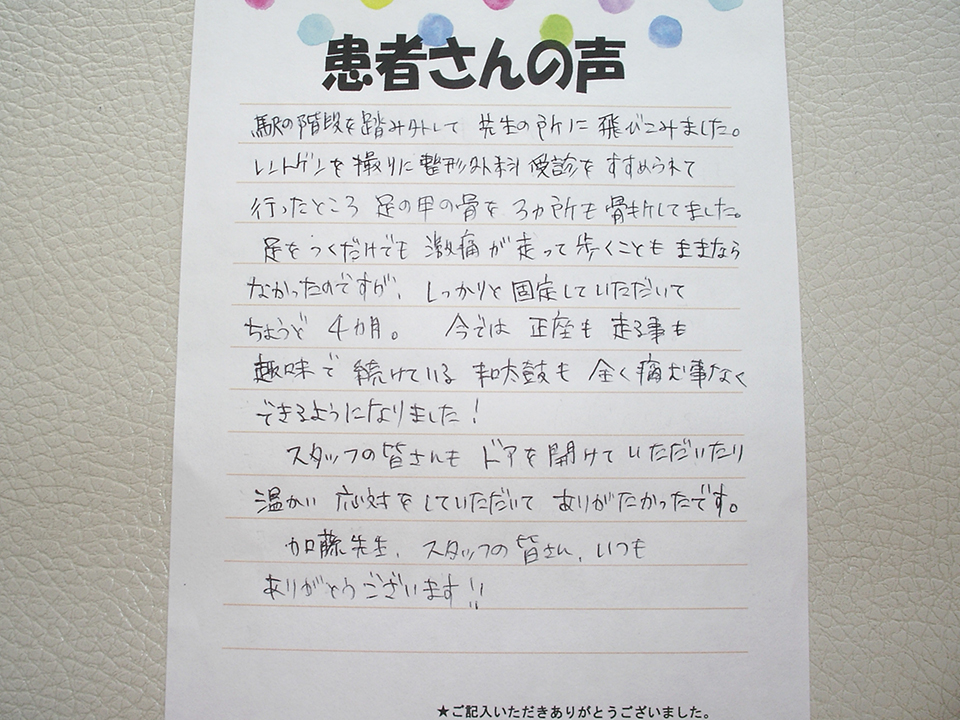 患者さんの声
駅の階段を踏み外して 先生の所に 飛びこみました。
レントゲンを 撮りに 整形外科 受診を すすめられて
行ったところ 足の甲の骨を 3カ所も 骨折してました。
足をつくだけでも 激痛が 走って 歩くことも ままなら
なかったのですが、しっかりと 固定していただいて
ちょうど 4カ月。 今では 正座も 走る事も
趣味で 続けている 和太鼓も 全く 痛む事なく
できるようになりました！
スタッフの 皆さんも ドアを 開けて いただいたり
温かい 応対を していただいて ありがたかったです。
加藤先生、スタッフの 皆さん、いつも
ありがとうございます!!
★ご記入いただきありがとうございました。